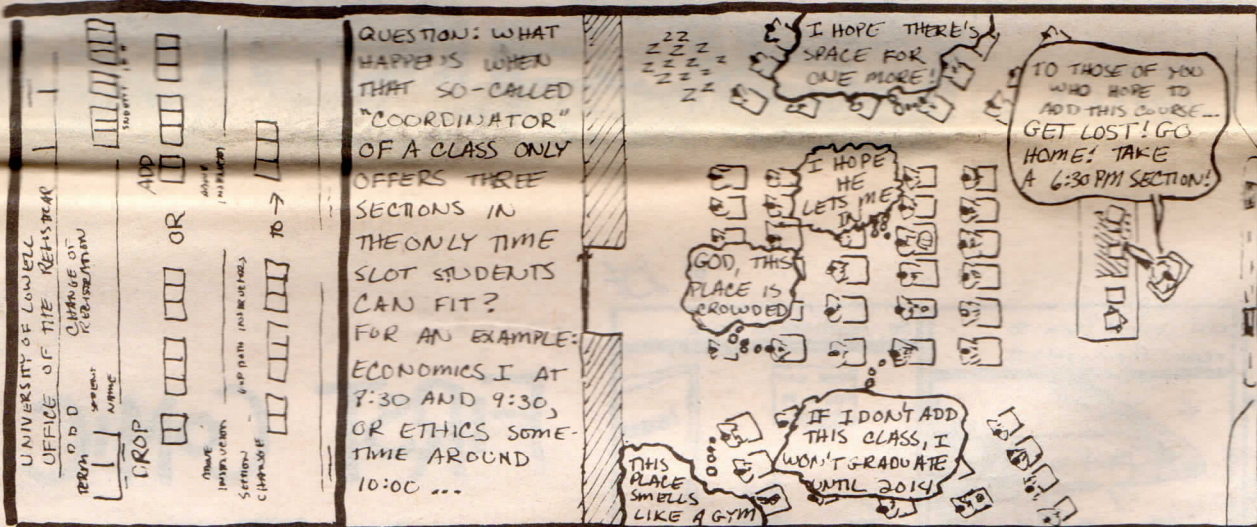 UNIVERSITY OF LOWELL
OFFICE OF THE REGISTRAR
TERM
STUDENT
NAME
CHANGE OF
REGISTRATION
DROP
OR
ADD
SECTION
CHANGE
TO →
QUESTION: WHAT
HAPPENS WHEN
THAT SO-CALLED
"COORDINATOR"
OF A CLASS ONLY
OFFERS THREE
SECTIONS IN
THE ONLY TIME
SLOT STUDENTS
CAN FIT?
FOR AN EXAMPLE:
ECONOMICS I AT
8:30 AND 9:30,
OR ETHICS SOME-
TIME AROUND
10:00 ...
ZZ
ZZZZ
ZZZZ
ZZZ
ZZ
I HOPE THERE'S
SPACE FOR
ONE MORE!
TO THOSE OF YOU
WHO HOPE TO
ADD THIS COURSE...
GET LOST! GO
HOME! TAKE
A 6:30 PM SECTION!
I HOPE
HE
LETS ME
IN
GOD, THIS
PLACE IS
CROWDED
IF I DON'T ADD
THIS CLASS, I
WON'T GRADUATE
UNTIL 2014
THIS
PLACE
SMELLS
LIKE A GYM